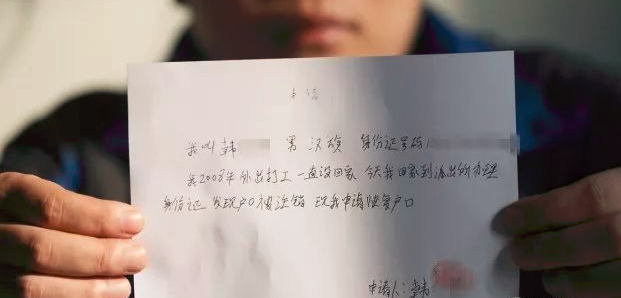 申请
我叫韩 男 汉族 身份证号码
我2008年外出打工一直没回家 今天我回家到派出所办理
身份证 发现户口被注销 现我申请恢复户口
申请人:韩